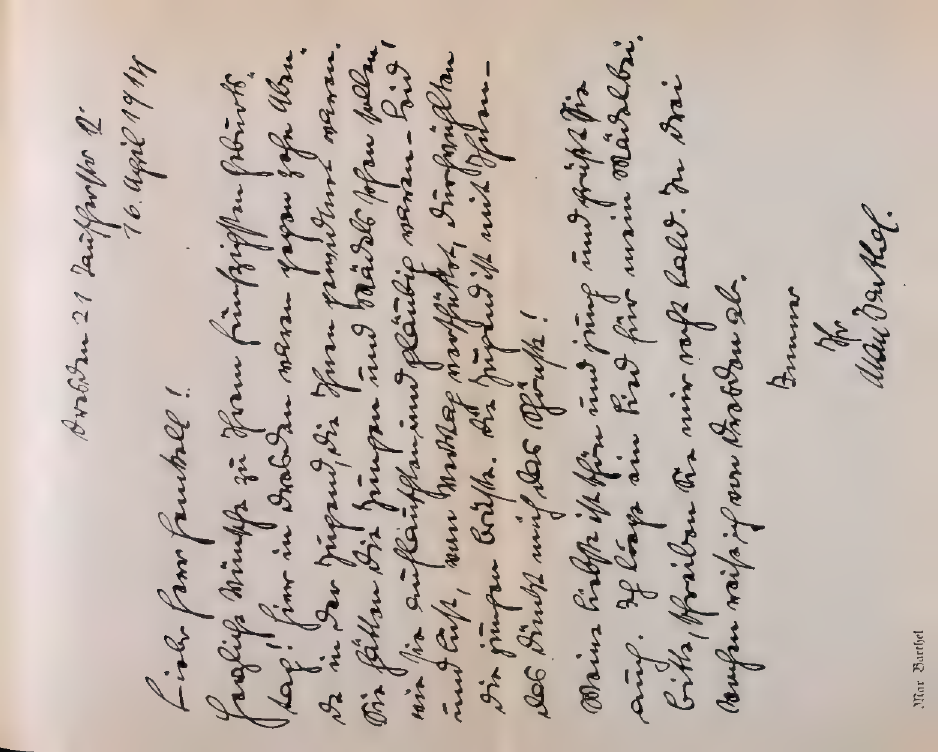 Dresden 21
16. April 1914
Lieber Herr Henckell!
Herzliche Wünsche zu Ihrem fünfzigsten Geburts-
tag! Hier in Dresden waren gegen zehn Aben-
de in der Jugend, die Ihnen gewidmet waren.
Sie hätten die Jungen und Mädels sehen sollen,
wie sie auflauschten und gläubig waren – Leid
und Lust, vom Werktag verschüttet, durchwühlten
die jungen Brüste. Die Jugend ist mit Ihnen –
das dünkt mich das Schönste!
Meine Liebste ist schön und jung und grüßt Sie
auch. Ich lege ein Lied für mein Mädel bei.
Bitte, schreiben Sie mir recht bald. In drei
Wochen reise ich von Dresden ab.
Immer
Ihr
Max Barthel.
Max Barthel